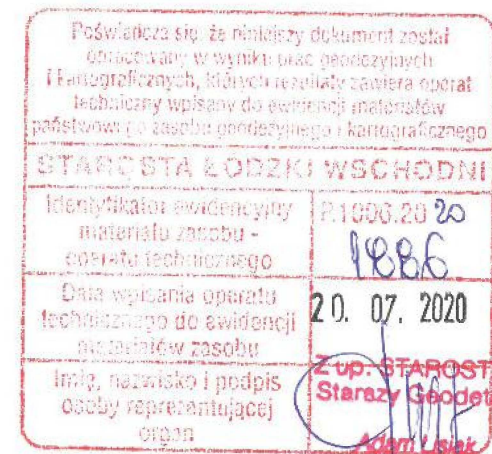 Poświadcza się, że niniejszy dokument został
opracowany w wyniku prac geodezyjnych
i kartograficznych, których rezultaty zawiera operat
techniczny wpisany do ewidencji materiałów
państwowego zasobu geodezyjnego i kartograficznego
STAROSTA ŁÓDZKI WSCHODNI
Identyfikator ewidencyjny
materiału zasobu -
operatu technicznego
P.1006.2020
1886
Data wpisania operatu
technicznego do ewidencji
materiałów zasobu
20. 07. 2020
Imię, nazwisko i podpis
osoby reprezentującej
organ
Z up. STAROST
Starszy Geodet
Adam Lisiak